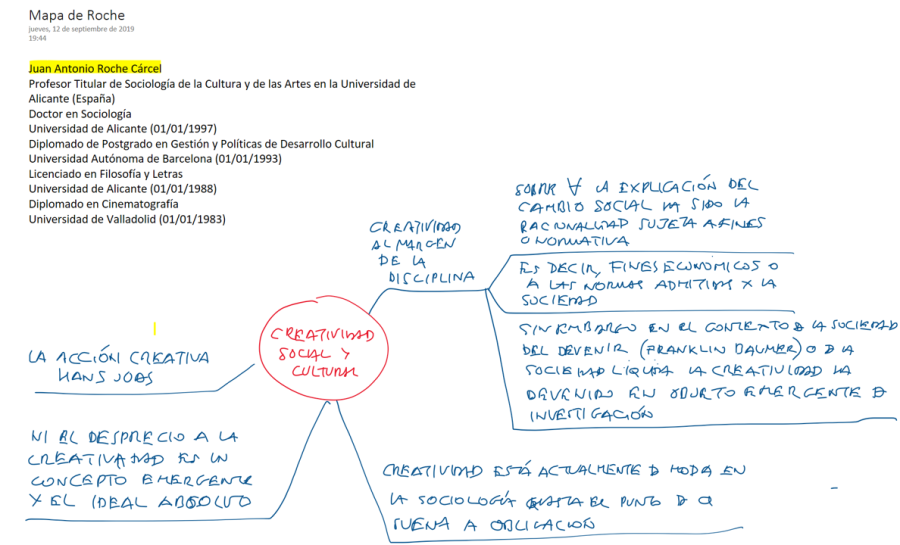 Mapa de Roche
jueves, 12 de septiembre de 2019
19:44
Juan Antonio Roche Cárcel
Profesor Titular de Sociología de la Cultura y de las Artes en la Universidad de
Alicante (España)
Doctor en Sociología
Universidad de Alicante (01/01/1997)
Diplomado de Postgrado en Gestión y Políticas de Desarrollo Cultural
Universidad Autónoma de Barcelona (01/01/1993)
Licenciado en Filosofía y Letras
Universidad de Alicante (01/01/1988)
Diplomado en Cinematografía
Universidad de Valladolid (01/01/1983)
CREATIVIDAD
SOCIAL Y
CULTURAL
CREATIVIDAD
AL MARGEN
DE LA
DISCIPLINA
SOBRE ∀ LA EXPLICACIÓN DEL
CAMBIO SOCIAL HA SIDO LA
RACIONALIDAD SUJETA A FINES
O NORMATIVA
ES DECIR, FINES ECONÓMICOS O
A LAS NORMAS ADMITIDAS X LA
SOCIEDAD
SIN EMBARGO EN EL CONTEXTO D LA SOCIEDAD
DEL DEVENIR (FRANKLIN BAUMER) O D LA
SOCIEDAD LÍQUIDA LA CREATIVIDAD HA
DEVENIDO EN OBJETO EMERGENTE D
INVESTIGACIÓN
LA ACCIÓN CREATIVA
HANS JOAS
NI EL DESPRECIO A LA
CREATIVIDAD ES UN
CONCEPTO EMERGENTE
Y EL IDEAL ABSOLUTO
CREATIVIDAD ESTÁ ACTUALMENTE D MODA EN
LA SOCIOLOGÍA HASTA EL PUNTO D Q
SUENA A OBLIGACION